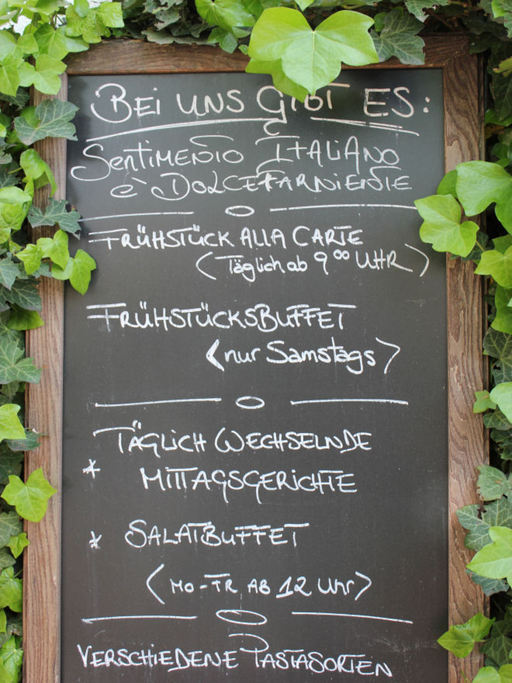 BEI UNS GIBT ES:
SENTIMENTO ITALIANO
è DOLCEFARNIENTE
FRÜHSTÜCK ALLA CARTE
(Täglich ab 9⁰⁰ UHR)
FRÜHSTÜCKSBUFFET
(nur Samstags)
TÄGLICH WECHSELNDE
* MITTAGSGERICHTE
* SALATBUFFET
(MO-FR, AB 12 Uhr)
VERSCHIEDENE PASTASORTEN